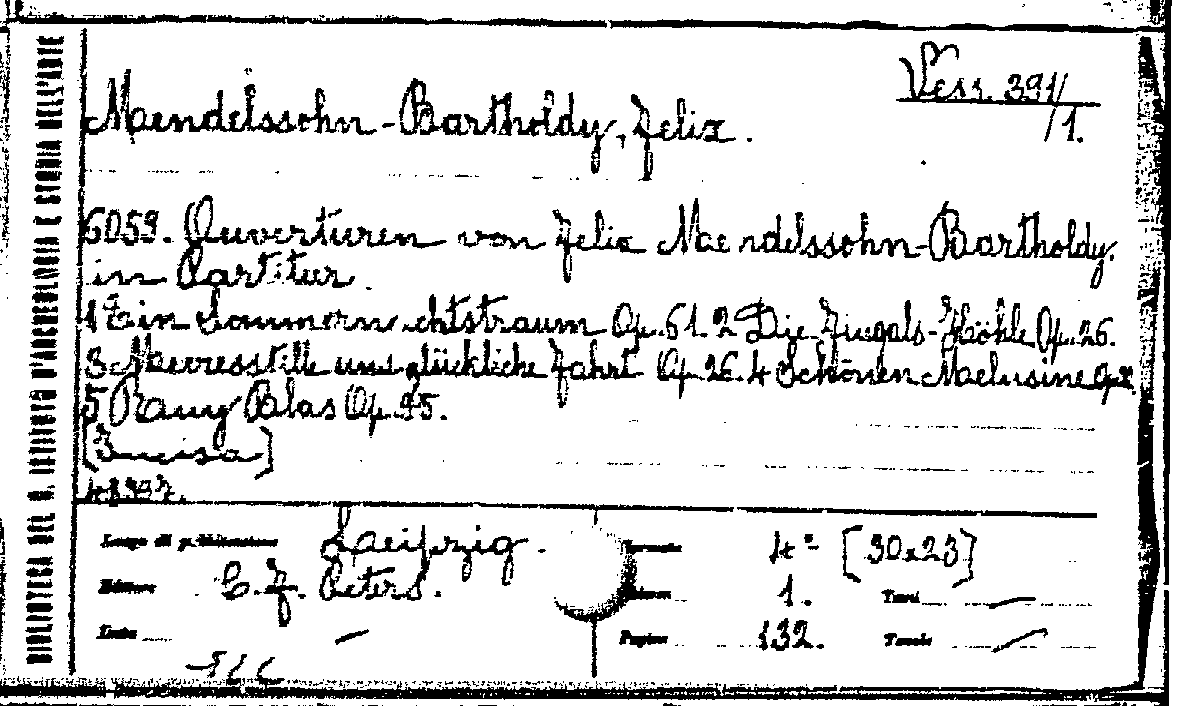 BIBLIOTECA DEL R. ISTITUTO D'ARCHEOLOGIA E STORIA DELL'ARTE
Vess. 391/1.
Maendelssohn-Bartholdy, Felix.
6059. Ouverturen von Felix Maendelssohn-Bartholdy.
in Partitur.
1 Ein Sommernachtstraum Op. 61. 2 Die Fingals-Höhle Op. 26.
3 Meeresstille und glückliche Fahrt Op. 26. 4 Schönen Maelusine Op.
5 Rauy Blas Op. 95.
[Incisa]
Luogo di pubblicazione Laeipzig. Formato 4° [30x23]
Editore C. F. Peters. Volumi 1. Tomi —
Data — Pagine 132. Tavole —